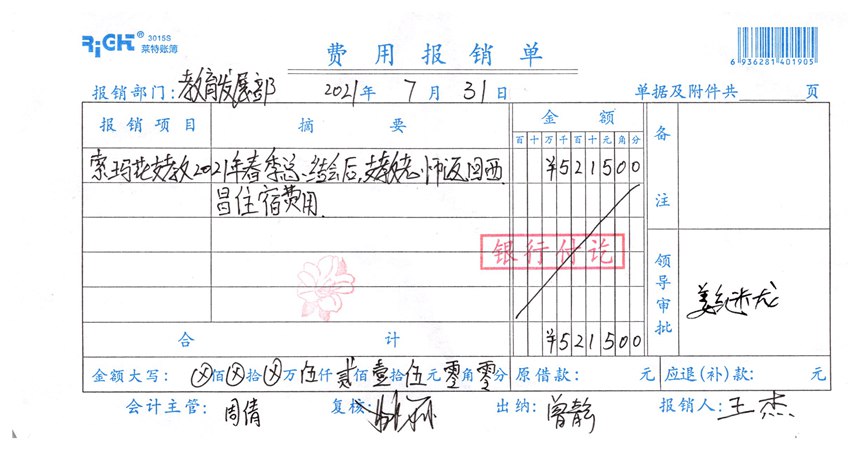 RiGHT® 3015S
莱特账簿
费用报销单
6 936281 401905
报销部门：教育发展部 2021年 7月 31日 单据及附件共 页
报销项目 摘要 金额 备注
百十万千百十元角分
索玛花支教2021年春季总结会后,支教老师返回西 ¥521500
昌住宿费用.
银行付讫
领导审批
合计 ¥521500
金额大写: ⊗佰⊗拾⊗万伍仟贰佰壹拾伍元零角零分 原借款: 元 应退(补)款: 元
会计主管: 周倩 复核: 出纳: 曾静 报销人: 王杰